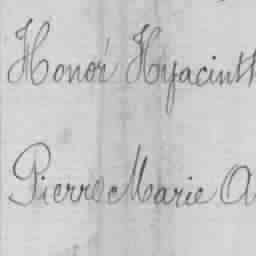 Honoré Hyacinth
Pierre Marie A